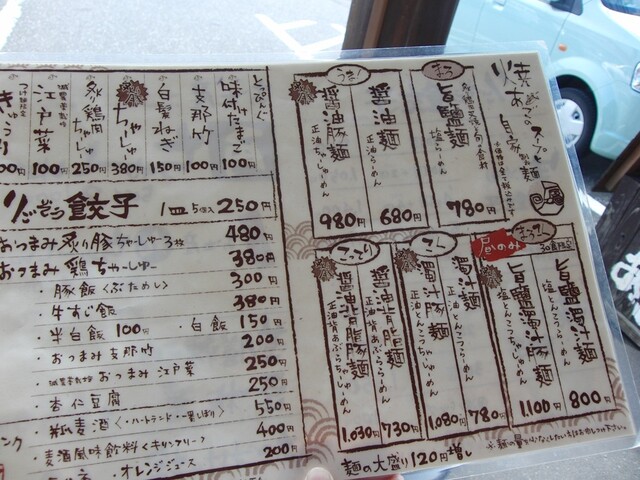 焼あごのスープと
自家製麺
まろ
旨鹽麺
塩らーめん
780円
うま
醤油麺
正油らーめん
680円
醤油豚麺
正油ちゃーしゅーめん
980円
とっぴんぐ
味付たまご
100円
支那竹
100円
白髪ねぎ
150円
ちゃーしゅー
380円
炙り鶏肉ちゃーしゅー
250円
減農薬栽培
江戸菜
100円
きゅうり
昼のみ
30食限定
旨鹽濁汁麺
塩とんこつらーめん
800円
旨鹽濁汁豚麺
塩とんこつちゃーしゅーめん
1,100円
濁汁麺
正油とんこつらーめん
780円
濁汁豚麺
正油とんこつちゃーしゅーめん
1,080円
こってり
醤油背脂麺
正油背あぶららーめん
730円
醤油背脂豚麺
正油背あぶらちゃーしゅーめん
1,030円
麺の大盛り120円増し
餃子 1皿5個入 250円
おつまみ炙り豚ちゃーしゅー3枚 480円
おつまみ鶏ちゃーしゅー 380円
・豚飯<ぶためし> 300円
・牛すじ飯 380円
・半白飯100円 ・白飯150円
・おつまみ支那竹 200円
・減農薬栽培おつまみ江戸菜 250円
・杏仁豆腐 250円
・麦酒<・ハートランド・一番しぼり> 550円
・麦酒風味飲料<キリンフリー> 400円
・オレンジジュース 200円